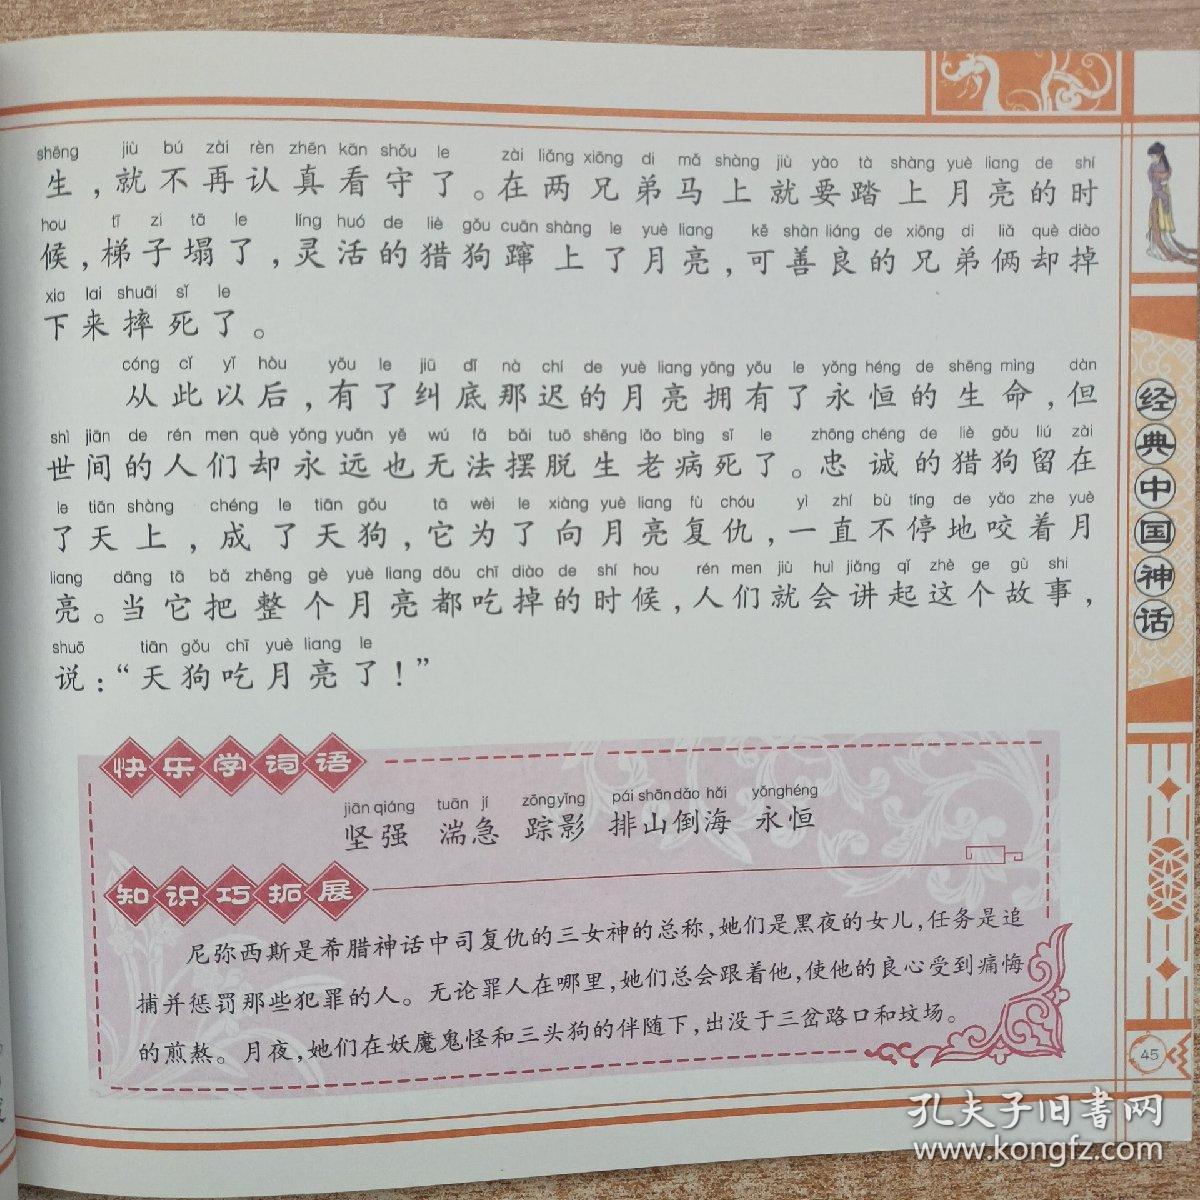 shēng jiù bú zài rèn zhēn kān shǒu le zài liǎng xiōng di mǎ shàng jiù yào tà shàng yuè liang de shí
生，就不再认真看守了。在两兄弟马上就要踏上月亮的时
hou tī zi tā le líng huó de liè gǒu cuān shàng le yuè liang kě shàn liáng de xiōng di liǎ què diào
候，梯子塌了，灵活的猎狗蹿上了月亮，可善良的兄弟俩却掉
xia lai shuāi sǐ le
下来摔死了。
cóng cǐ yǐ hòu yǒu le jiū dǐ nà chí de yuè liang yōng yǒu le yǒng héng de shēng mìng dàn
从此以后，有了纠底那迟的月亮拥有了永恒的生命，但
shì jiān de rén men què yǒng yuǎn yě wú fǎ bǎi tuō shēng lǎo bìng sǐ le zhōng chéng de liè gǒu liú zài
世间的人们却永远也无法摆脱生老病死了。忠诚的猎狗留在
le tiān shàng chéng le tiān gǒu tā wèi le xiàng yuè liang fù chóu yì zhí bù tíng de yǎo zhe yuè
了天上，成了天狗，它为了向月亮复仇，一直不停地咬着月
liang dāng tā bǎ zhěng gè yuè liang dōu chī diào de shí hou rén men jiù huì jiǎng qǐ zhè ge gù shi
亮。当它把整个月亮都吃掉的时候，人们就会讲起这个故事，
shuō tiān gǒu chī yuè liang le
说：“天狗吃月亮了！”
快乐学词语
jiān qiáng tuān jí zōng yǐng pái shān dǎo hǎi yǒng héng
坚强 湍急 踪影 排山倒海 永恒
知识巧拓展
尼弥西斯是希腊神话中司复仇的三女神的总称，她们是黑夜的女儿，任务是追
捕并惩罚那些犯罪的人。无论罪人在哪里，她们总会跟着他，使他的良心受到痛悔
的煎熬。月夜，她们在妖魔鬼怪和三头狗的伴随下，出没于三岔路口和坟场。
经典中国神话
45
孔夫子旧书网
www.kongfz.com